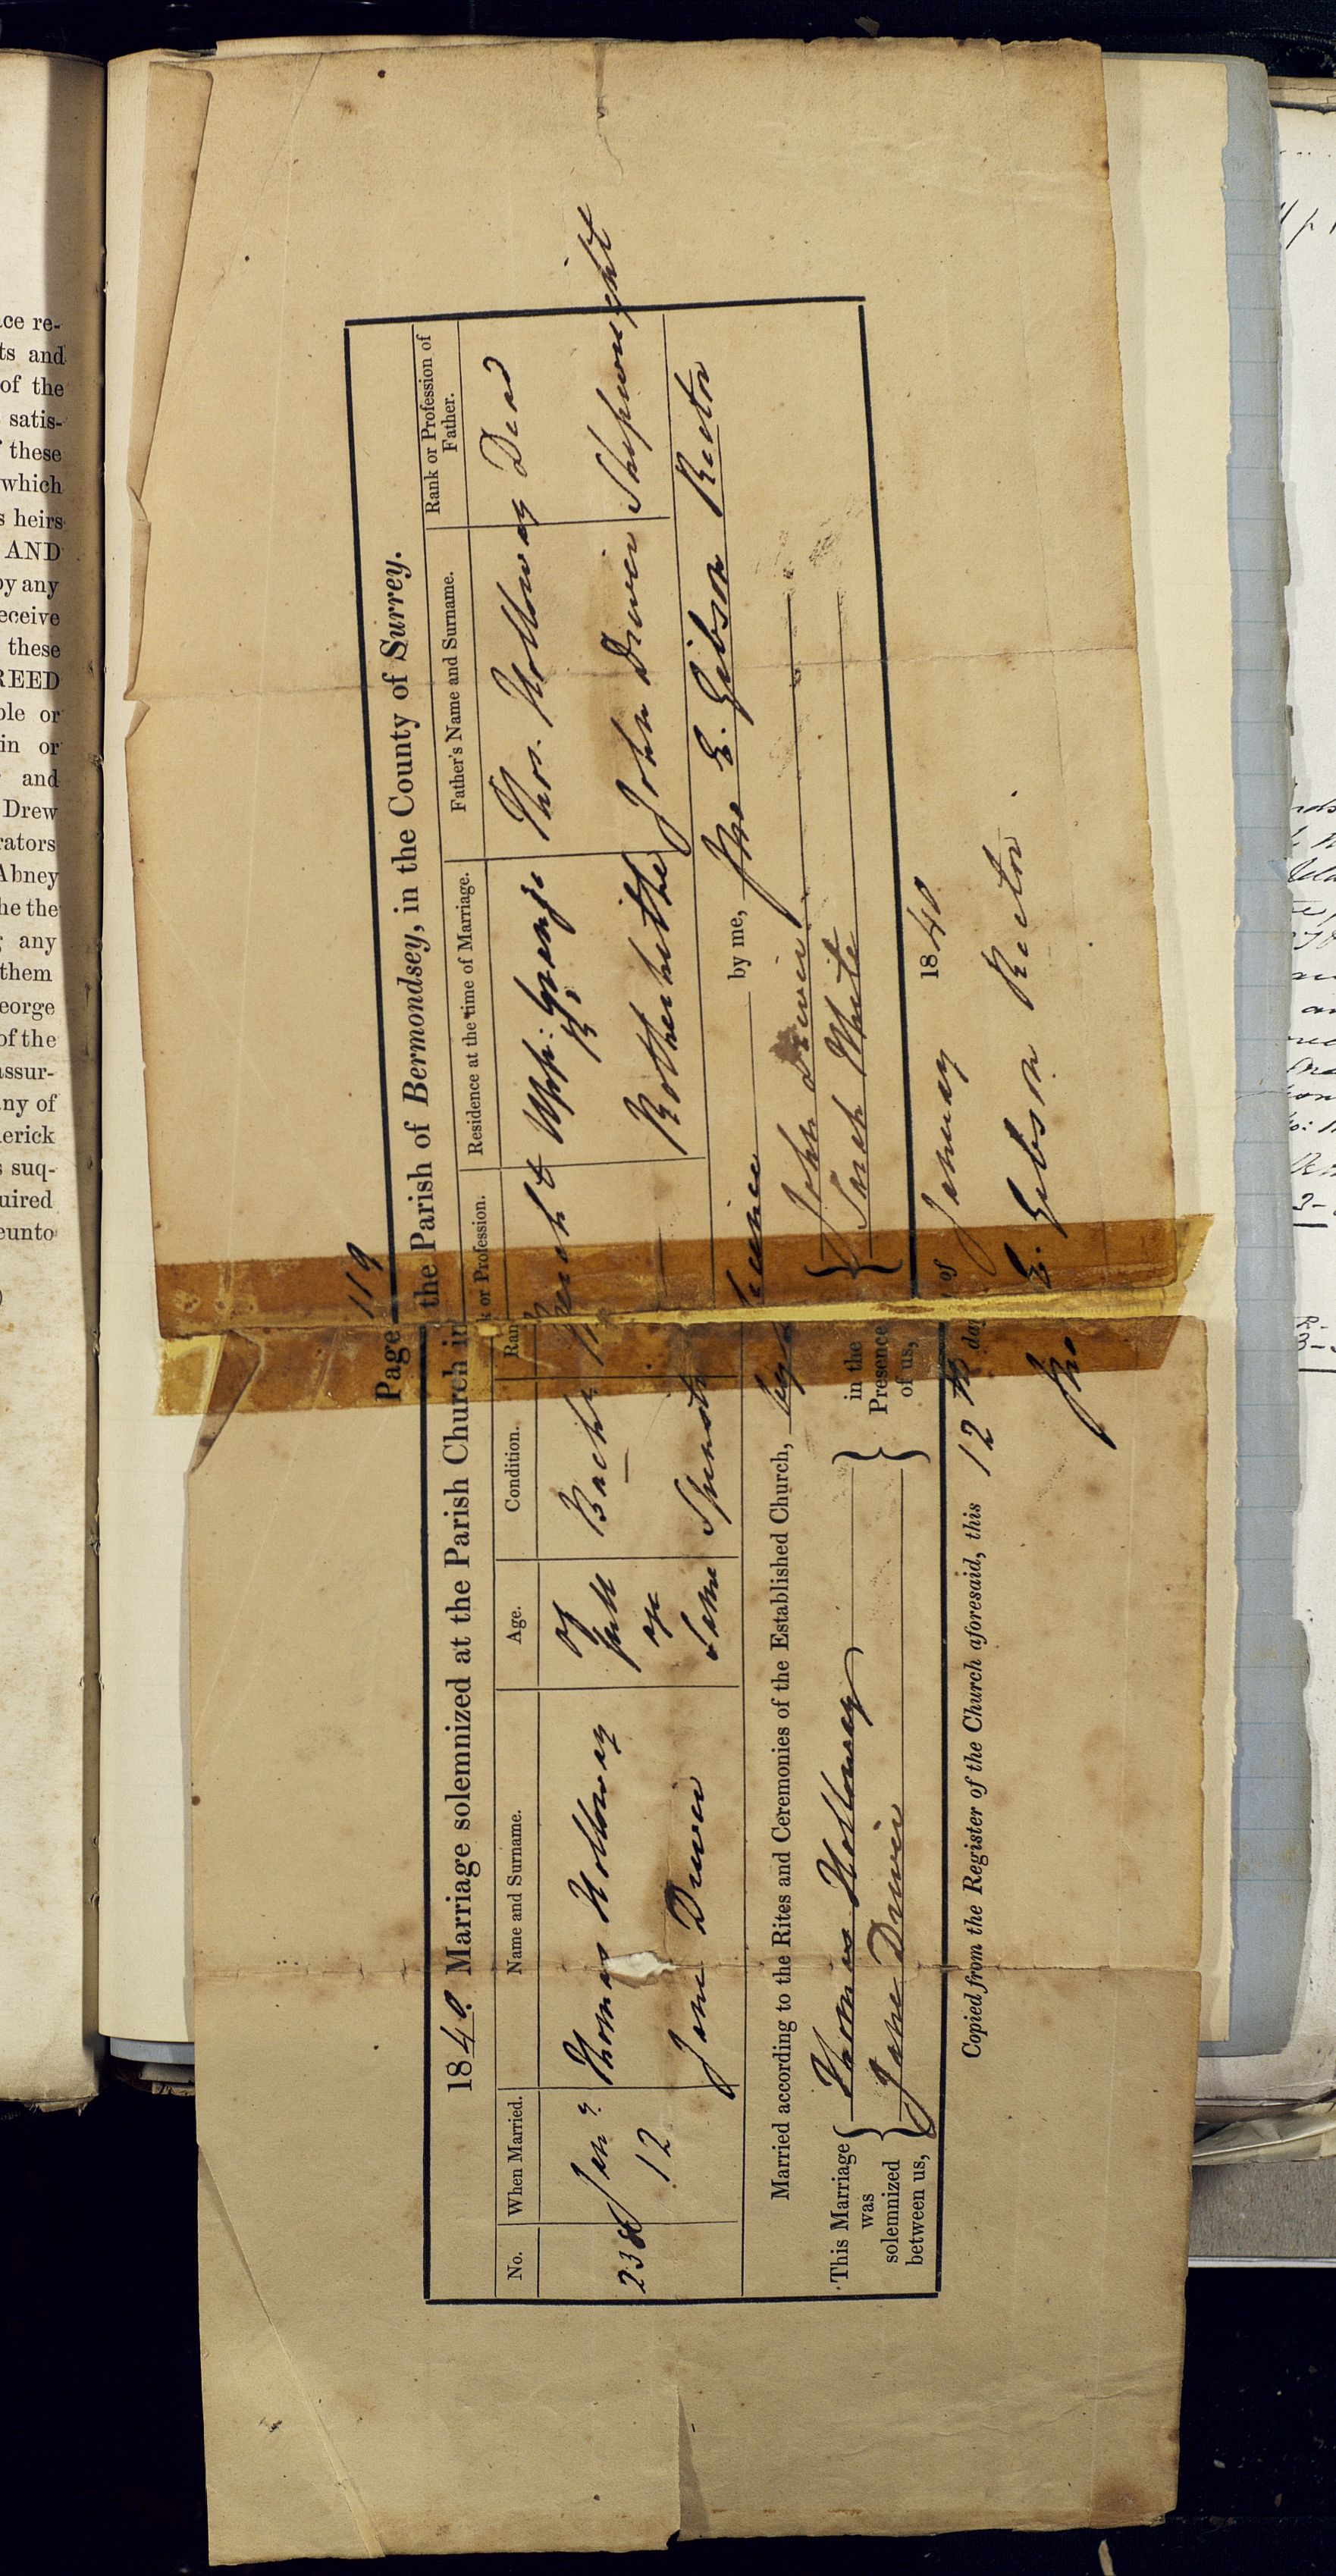 Page 119
1840. Marriage solemnized at the Parish Church in the Parish of Bermondsey, in the County of Surrey.
No. When Married. Name and Surname. Age. Condition. Rank or Profession. Residence at the time of Marriage. Father's Name and Surname. Rank or Profession of Father.
238 Jany 12 Thomas Holloway of full age Bachr Upp: Grange Thos. Holloway Dead
Jane Driver Same Spinster Rotherhithe John Driver Shipwright
Married according to the Rites and Ceremonies of the Established Church, by Licence by me, Jno E. Gibson Rector
This Marriage was solemnized between us, { Thomas Holloway } in the Presence of us, { John Driver
Jane Driver Sarah White
Copied from the Register of the Church aforesaid, this 12th day of January 1840
Jno E. Gibson Rector.
ce re-
ts and
of the
satis-
these
which
s heirs
AND
by any
eceive
these
REED
ble or
in or
and
Drew
rators
Abney
he the
any
them
eorge
of the
assur-
ny of
erick
s suq-
uired
eunto